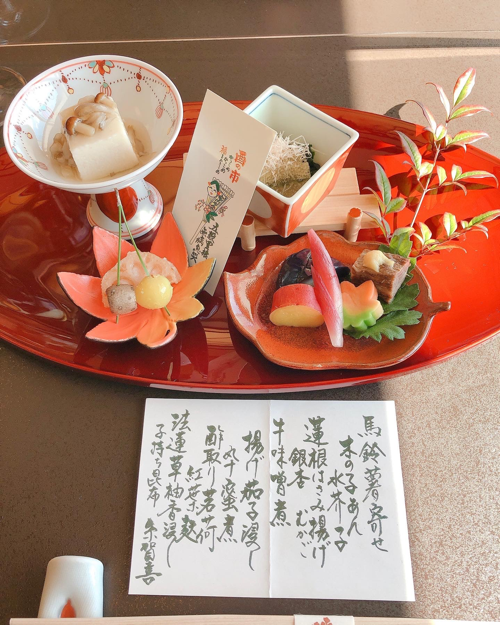 馬鈴薯寄せ
木の子あん
水芥子
蓮根はさみ揚げ
銀杏 むかご
牛味噌煮
揚げ茄子浸し
丸十蜜煮
酢取り茗荷
紅葉麩
法蓮草柚香浸し
子持ち昆布 糸賀喜
酉の市